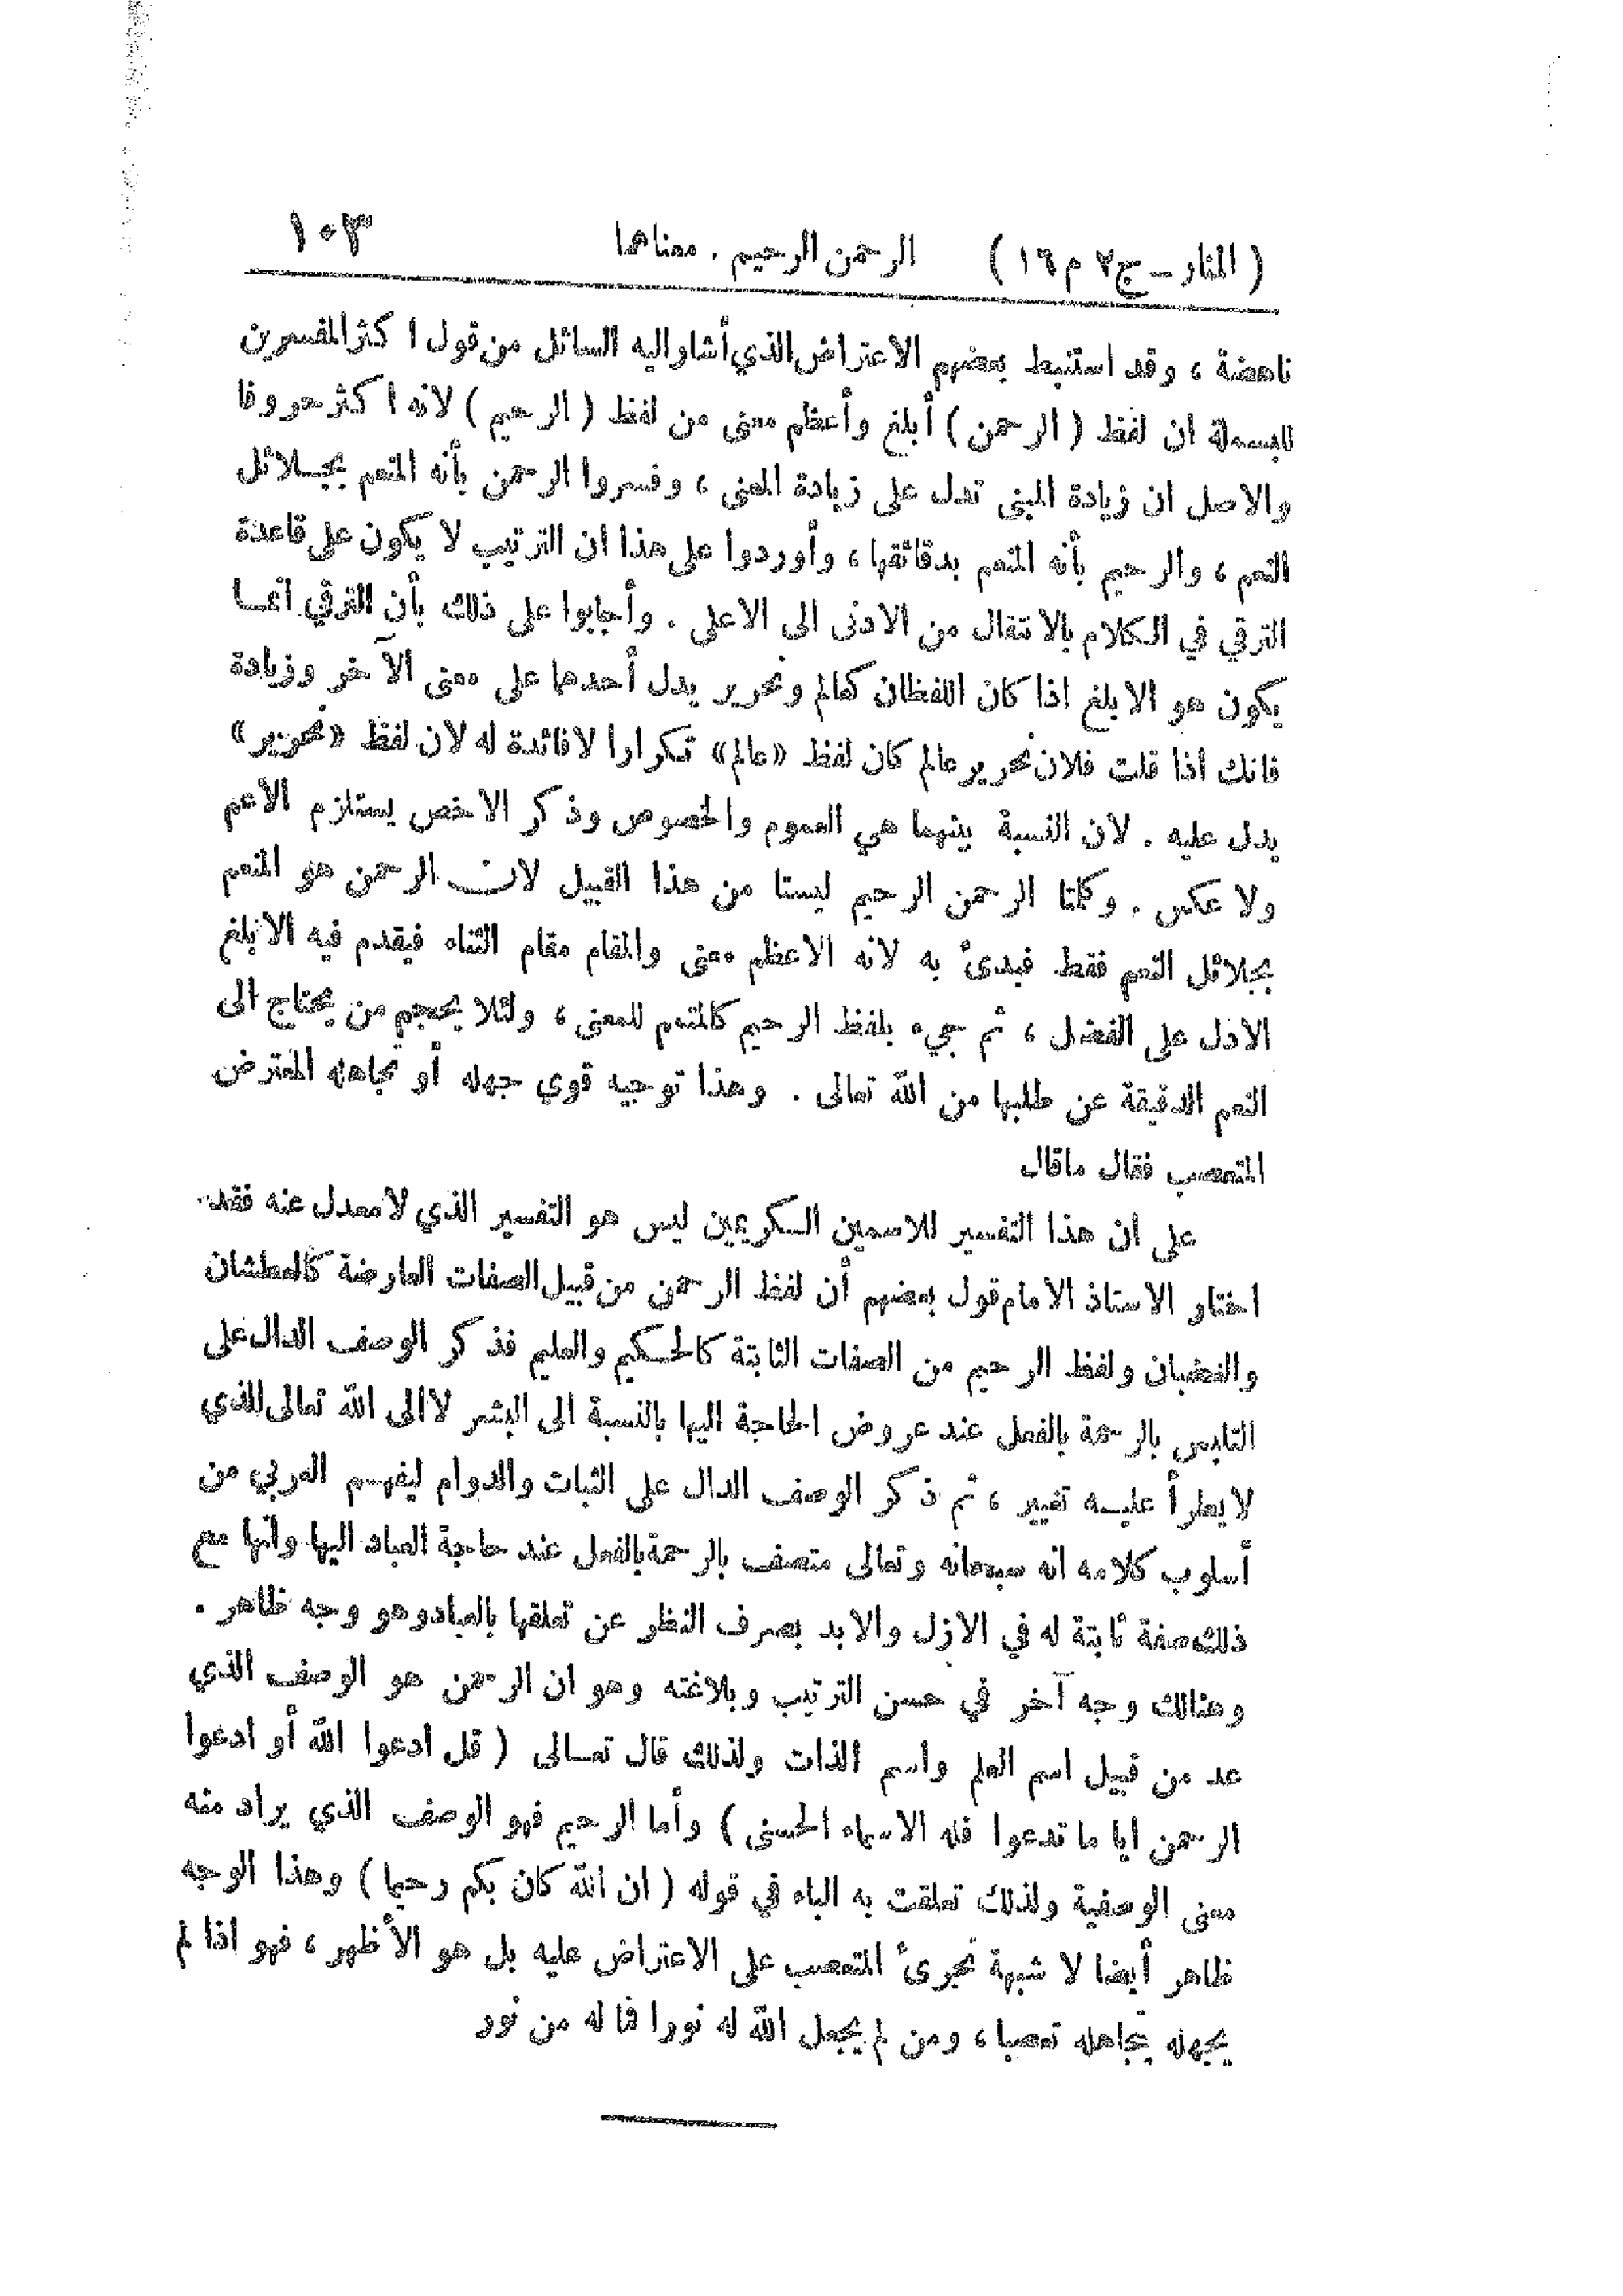 (المنار ـ ج ٢ م ١٦) الرحمن الرحيم . معناهما ١٠٣
ناهضة ، وقد استنبط بعضهم الاعتراض الذي أشار اليه السائل من قول اكثر المفسرين
للبسملة ان لفظ (الرحمن) أبلغ وأعظم معنى من لفظ (الرحيم) لانه اكثر حروفا
والاصل ان زيادة المبنى تدل على زيادة المعنى ، وفسروا الرحمن بأنه المنعم بجلائل
النعم ، والرحيم بأنه المنعم بدقائقها ، وأوردوا على هذا ان الترتيب لا يكون على قاعدة
الترقي في الكلام بالانتقال من الادنى الى الاعلى . وأجابوا على ذلك بأن الترقي انما
يكون هو الابلغ اذا كان اللفظان كعالم ونحرير يدل أحدهما على معنى الآخر وزيادة
فانك اذا قلت فلان نحرير عالم كان لفظ «عالم» تكرارا لا فائدة له لان لفظ «نحرير»
يدل عليه . لان النسبة بينهما هي العموم والخصوص وذكر الاخص يستلزم الاعم
ولا عكس . وكلمتا الرحمن الرحيم ليستا من هذا القبيل لان الرحمن هو المنعم
بجلائل النعم فقط فبدئ به لانه الاعظم معنى والمقام مقام الثناء فيقدم فيه الابلغ
الادل على الفضل ، ثم جيء بلفظ الرحيم كالمتمم للمعنى ، ولئلا يحجم من يحتاج الى
النعم الدقيقة عن طلبها من الله تعالى . وهذا توجيه قوي جهله أو تجاهله المعترض
المتعصب فقال ماقال
على ان هذا التفسير للاسمين الكريمين ليس هو التفسير الذي لا معدل عنه فقد
اختار الاستاذ الامام قول بعضهم أن لفظ الرحمن من قبيل الصفات العارضة كالعطشان
والغضبان ولفظ الرحيم من الصفات الثابتة كالحكيم والعليم فذكر الوصف الدال على
التلبس بالرحمة بالفعل عند عروض الحاجة اليها بالنسبة الى البشر لا الى الله تعالى الذي
لا يطرأ عليه تغيير ، ثم ذكر الوصف الدال على الثبات والدوام ليفهم العربي من
أسلوب كلامه انه سبحانه وتعالى متصف بالرحمة بالفعل عند حاجة العباد اليها وانها مع
ذلك صفة ثابتة له في الازل والابد بصرف النظر عن تعلقها بالعباد وهو وجه ظاهر .
وهنالك وجه آخر في حسن الترتيب وبلاغته وهو ان الرحمن هو الوصف الذي
عد من قبيل اسم العلم واسم الذات ولذلك قال تعالى (قل ادعوا الله أو ادعوا
الرحمن ايا ما تدعوا فله الاسماء الحسنى) وأما الرحيم فهو الوصف الذي يراد منه
معنى الوصفية ولذلك تعلقت به الباء في قوله (ان الله كان بكم رحيما) وهذا الوجه
ظاهر أيضا لا شبهة تجرئ المتعصب على الاعتراض عليه بل هو الأظهر ، فهو اذا لم
يجهله يتجاهله تعصبا ، ومن لم يجعل الله له نورا فما له من نور